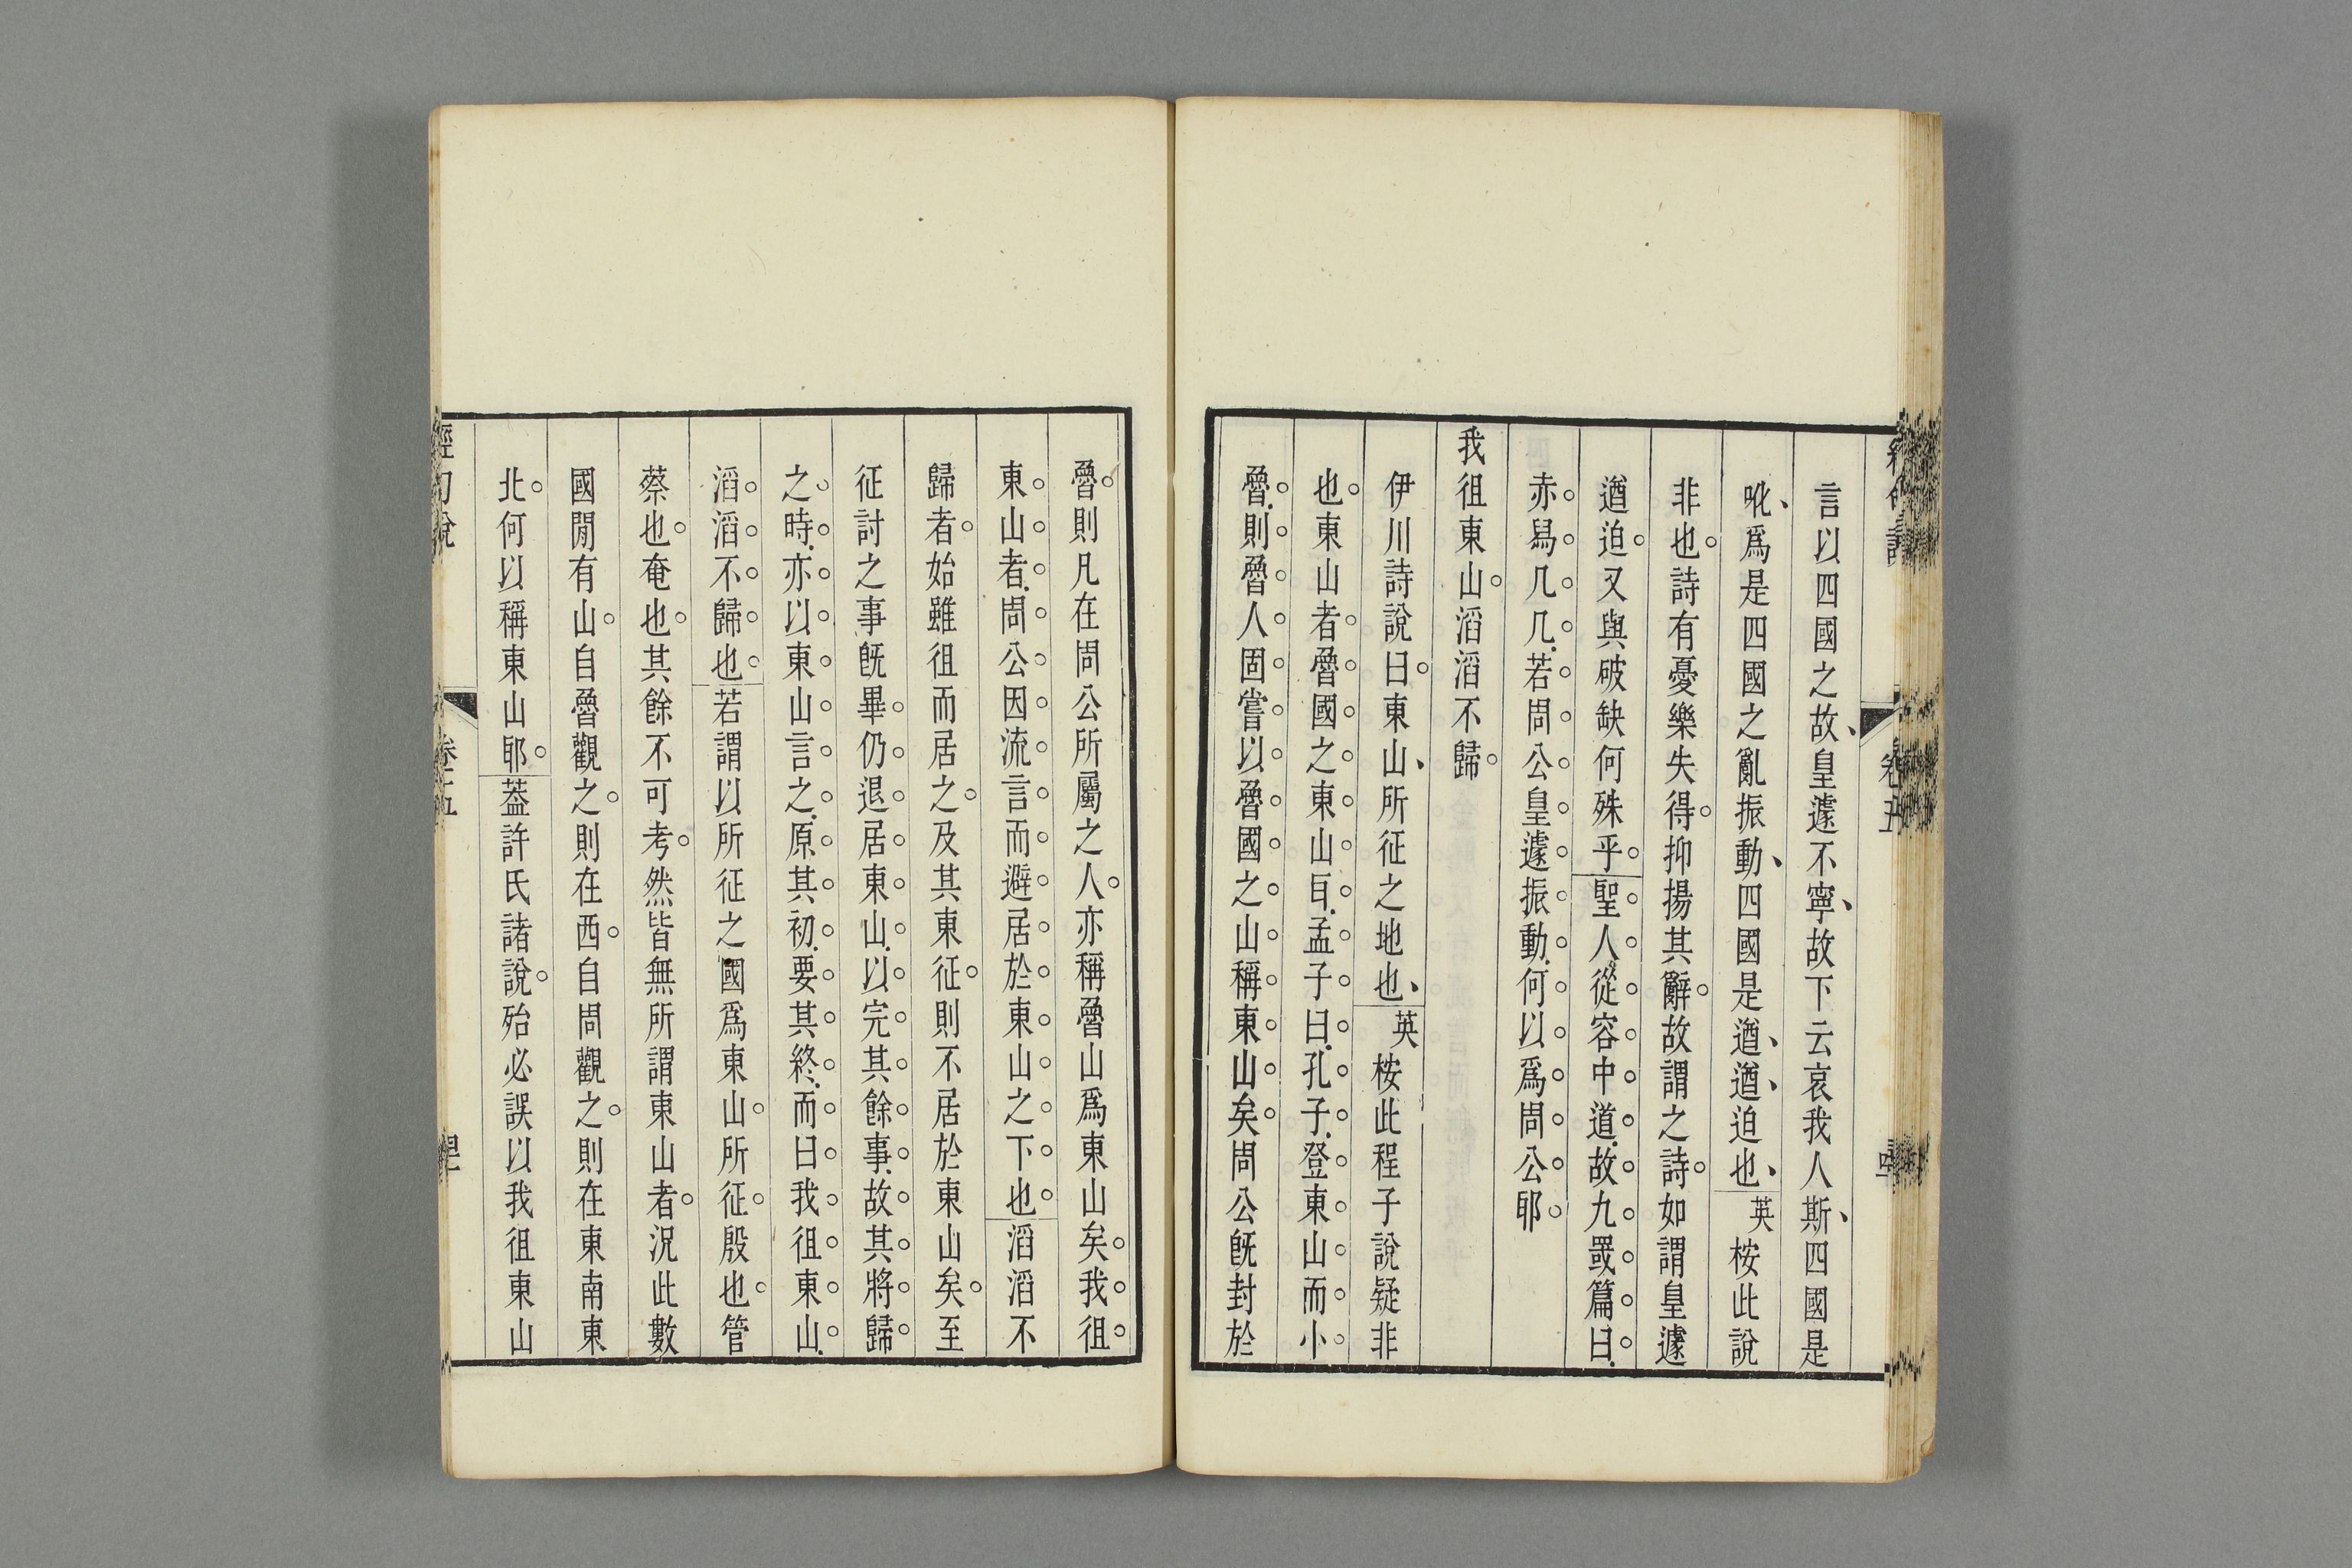 言以四國之故皇遽不寧故下云哀我人斯四國是
吪爲是四國之亂振動四國是遒遒迫也英桉此說
非也詩有憂樂失得抑揚其辭故謂之詩如謂皇遽
遒迫又與破缺何殊乎聖人從容中道故九罭篇曰
赤舄几几若周公皇遽振動何以爲周公耶
我徂東山滔滔不歸
伊川詩說曰東山所征之地也英桉此程子說疑非
也東山者魯國之東山耳孟子曰孔子登東山而小
魯則魯人固嘗以魯國之山稱東山矣周公旣封於
魯則凡在周公所屬之人亦稱魯山爲東山矣我徂
東山者周公因流言而避居於東山之下也滔滔不
歸者始雖徂而居之及其東征則不居於東山矣至
征討之事旣畢仍退居東山以完其餘事故其將歸
之時亦以東山言之原其初要其終而曰我徂東山
滔滔不歸也若謂以所征之國爲東山所征殷也管
蔡也奄也其餘不可考然皆無所謂東山者況此數
國閒有山自魯觀之則在西自周觀之則在東南東
北何以稱東山耶蓋許氏諸說殆必誤以我徂東山
經句說
卷十五